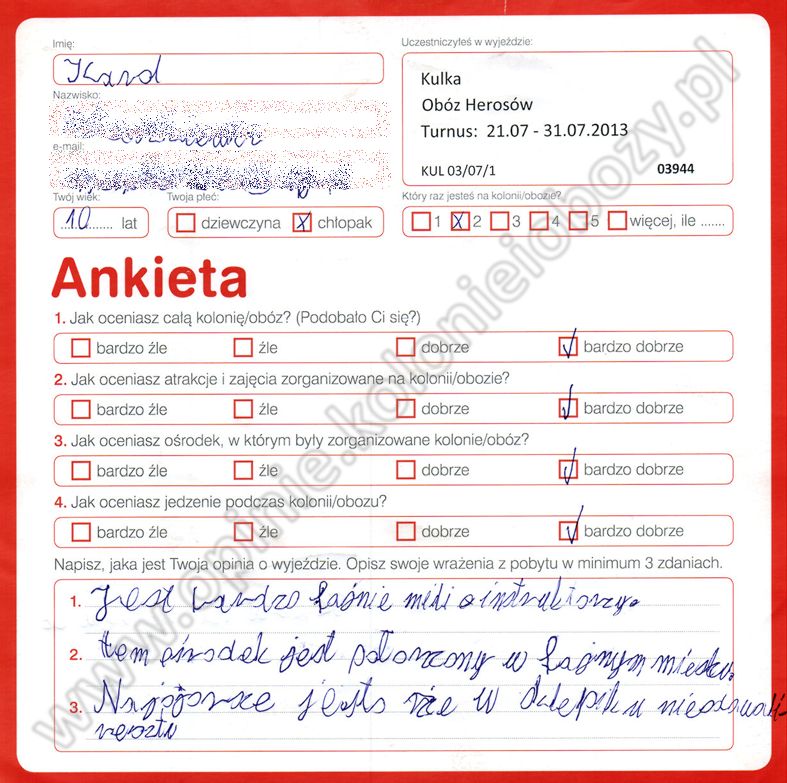 Imię:
Karol
Uczestniczyłeś w wyjeździe:
Kulka
Obóz Herosów
Turnus: 21.07 - 31.07.2013
KUL 03/07/1 03944
Nazwisko:
e-mail:
Twój wiek:
10 lat
Twoja płeć:
dziewczyna X chłopak
Który raz jesteś na kolonii/obozie?
1 X 2 3 4 5 więcej, ile .......
Ankieta
1. Jak oceniasz całą kolonię/obóz? (Podobało Ci się?)
bardzo źle źle dobrze bardzo dobrze
2. Jak oceniasz atrakcje i zajęcia zorganizowane na kolonii/obozie?
bardzo źle źle dobrze bardzo dobrze
3. Jak oceniasz ośrodek, w którym były zorganizowane kolonie/obóz?
bardzo źle źle dobrze bardzo dobrze
4. Jak oceniasz jedzenie podczas kolonii/obozu?
bardzo źle źle dobrze bardzo dobrze
Napisz, jaka jest Twoja opinia o wyjeździe. Opisz swoje wrażenia z pobytu w minimum 3 zdaniach.
1. Jest bardzo faśnie mili instruktorzy.
2. tem ośrodek jest położony w fajnym
3. jest w
www.opinie.kolonieiobozy.pl